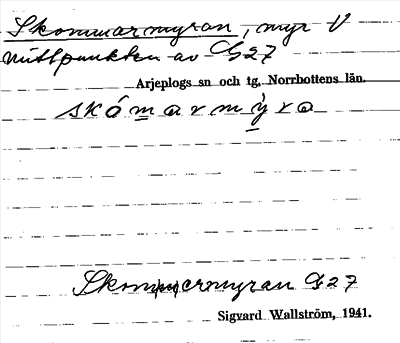 Skommarmyran, myr V
mittpunkten av G27
Arjeplogs sn och tg, Norrbottens län.
skómarmỳra
Skommermyran G27
Sigvard Wallström, 1941.